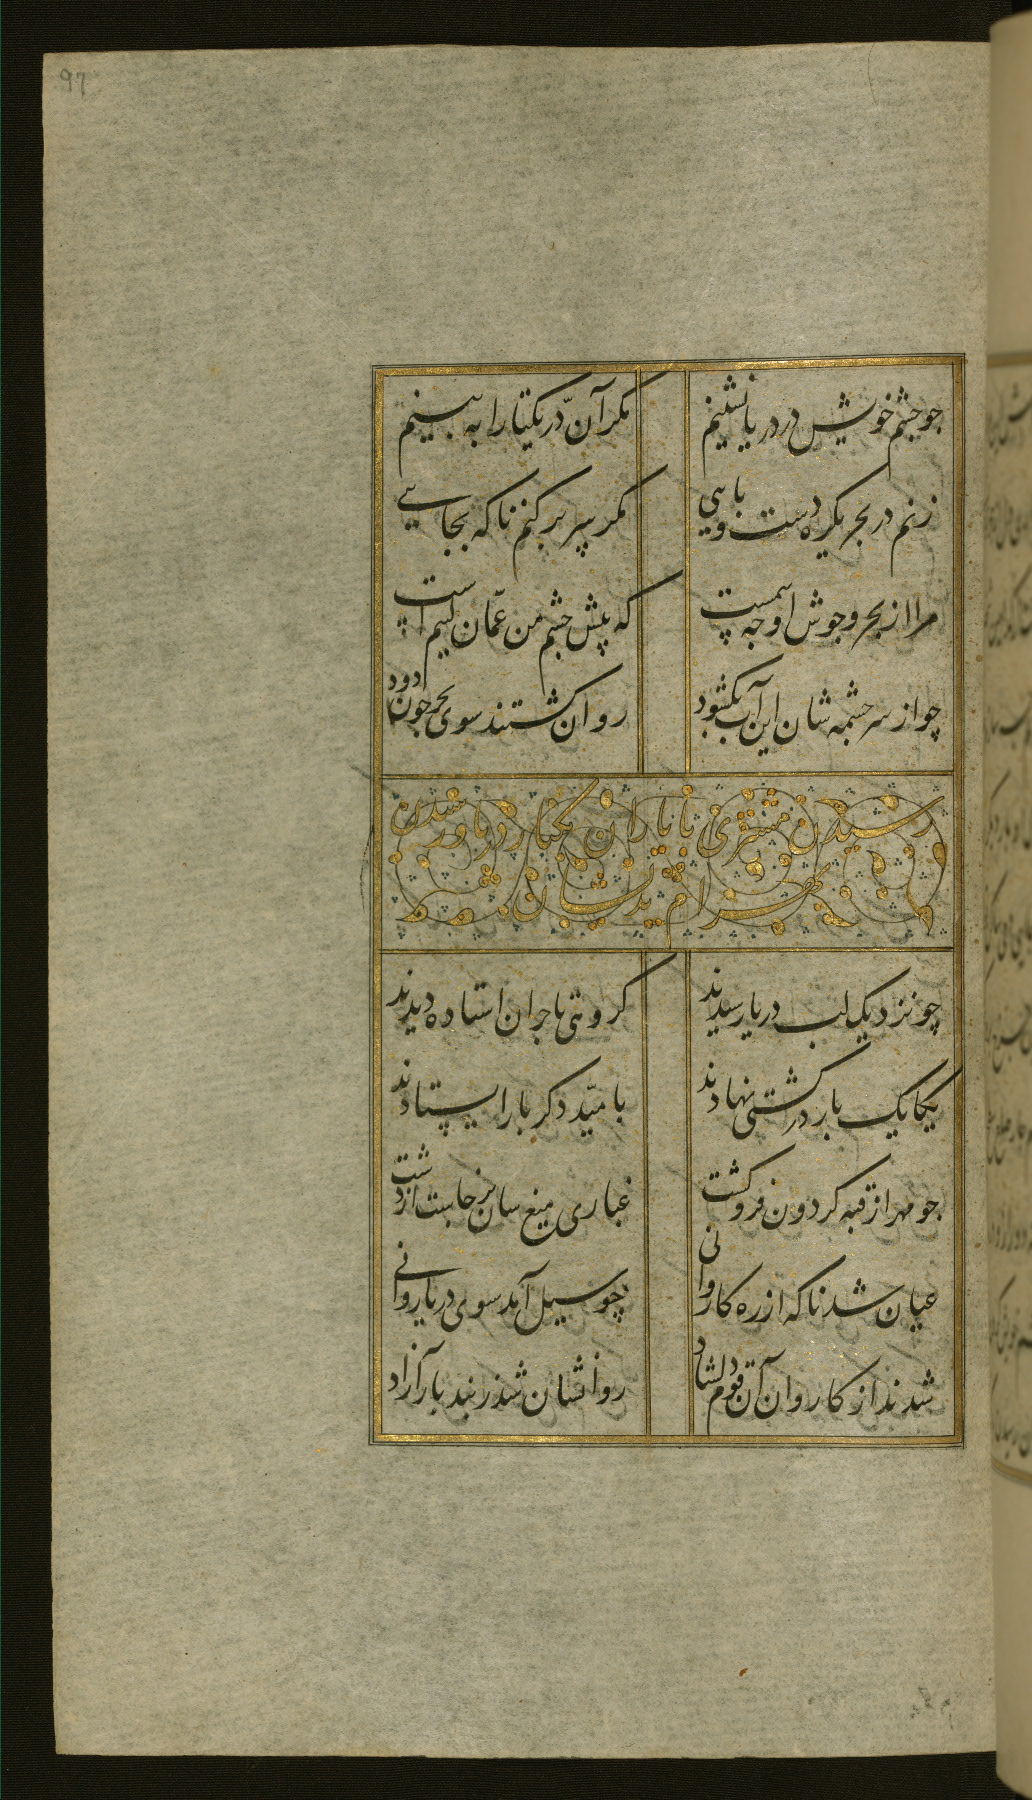 97
چو چشم خویش در دریا نشینم
مکر آن درّ یکتا را به بینم
زنم در بحر یکره دست و پایی
مکر سر بر کنم ناکه بجایی
مرا از بحر و جوش او چه بیمست
که پیش چشم من عمّان نیم است
چو از سر چشمه شان این آب بکشود
روان کشتند سوی بحر چون دود
رسیدن مشتری با یاران بکنار دریا و رسیدن
بهرام بدیشان
چو نزدیک لب دریا رسیدند
کروهی تاجران استاده دیدند
یکایک بار در کشتی نهادند
بامیّد دکر بار ایستادند
چو مهر از قبه کردون فرو کشت
غباری میغ سان برخاست از دشت
عیان شد ناکه از ره کاروانی
چو سیل آمد سوی دریا روانی
شدند از کاروان آن قوم دلشاد
روانشان شد ز بند بار آزاد